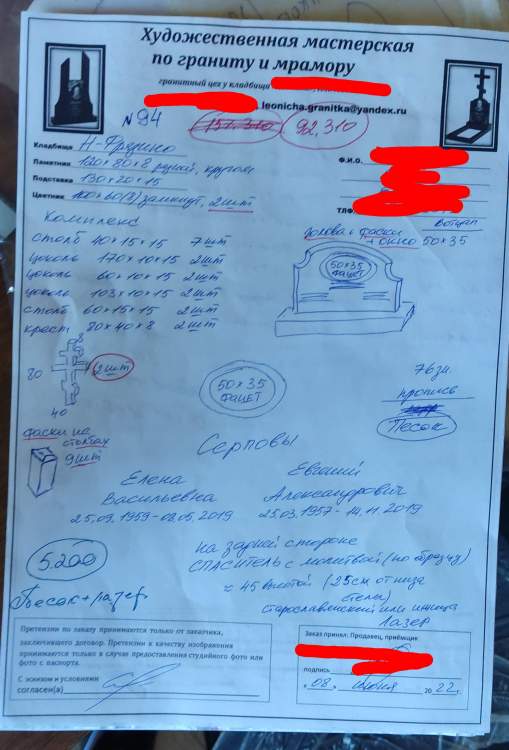 Художественная мастерская
по граниту и мрамору
гранитный цех у кладбища
leonicha.granitka@yandex.ru
N 94
151.310 92,310
Кладбище Н-Фрязино
Памятник 120×80×8 резной, кругом
Ф.И.О.
Подставка 130×20×15
Цветник 100×60(8) замкнут, 2шт
ТЛФ
Вотцап
Комплекс
голова + фаски
+ окно 50×35
столб 40×15×15 7шт
цоколь 170×10×15 2шт
цоколь 60×10×15 2шт
цоколь 103×10×15 2шт
столб 60×15×15 2шт
крест 80×40×8 2шт
50×35
фацет
80
2шт
40
50×35
фацет
76зн.
пропись
Песок
фаски на
столбах
9шт
Серповы
Елена
Васильевна
25.09.1959-08.05.2019
Евгений
Александрович
25.03.1957-14.11.2019
5.200
Песок+лазер
на задней стороне
СПАСИТЕЛЬ с молитвой (по образцу)
≈ 45 высотой (25см от низа
стелы)
Старославянский или ижица
Лазер
Претензии по заказу принимаются только от заказчика,
заключившего договор. Претензии к качеству изображения
принимаются только в случае предоставления студийного фото или
фото с паспорта.
С эскизом и условиями
согласен(а)
Заказ принял: Продавец, приёмщик
подпись
« 08 » июня 20 22 г.